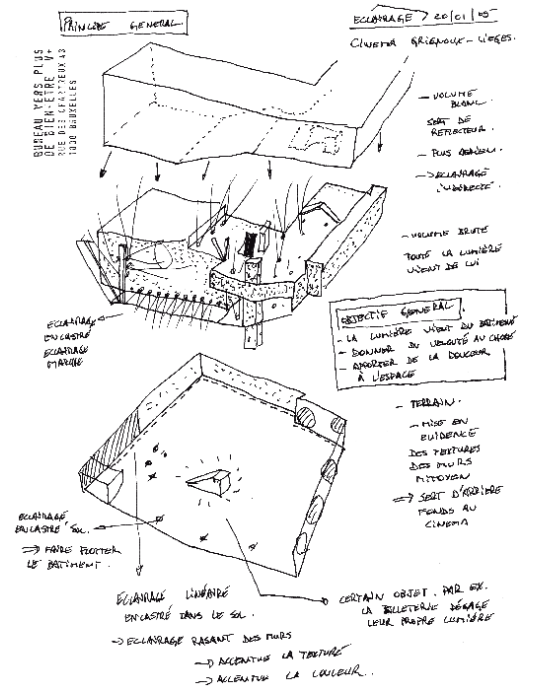 PRINCIPE GENERAL
ECLAIRAGE 20/01/05
CINEMA GRIGNOUX - LIEGES.
BUREAU VERS PLUS
DE BIEN-ETRE V+
RUE DES CHARTREUX 43
1000 BRUXELLES
- VOLUME
BLANC.
SERT DE
REFLECTEUR.
- PLUS AERIEN.
-> ECLAIRAGE
INDIRECTE.
- VOLUME BRUTE
TOUTE LA LUMIÈRE
VIENT DE LUI
ECLAIRAGE
ENCASTRÉ
ECLAIRAGE
MARCHE
OBJECTIF GENERAL
- LA LUMIÈRE VIENT DU BATIMENT
- DONNER DU VELOUTÉ AU
- APPORTER DE LA DOUCEUR
À L'ESPACE
- TERRAIN.
- MISE EN
EVIDENCE
DES TEXTURES
DES MURS
MITOYEN
=> SERT D'ARRIÈRE
FONDS AU
CINEMA
ECLAIRAGE
ENCASTRÉ SOL.
=> FAIRE FLOTTER
LE BATIMENT.
ECLAIRAGE LINÉAIRE
ENCASTRÉ DANS LE SOL.
-> ECLAIRAGE RASANT DES MURS
-> ACCENTUE LA TEXTURE
-> ACCENTUE LA COULEUR..
CERTAIN OBJET. PAR EX.
LA BILLETERIE DÉGAGE
LEUR PROPRE LUMIÈRE